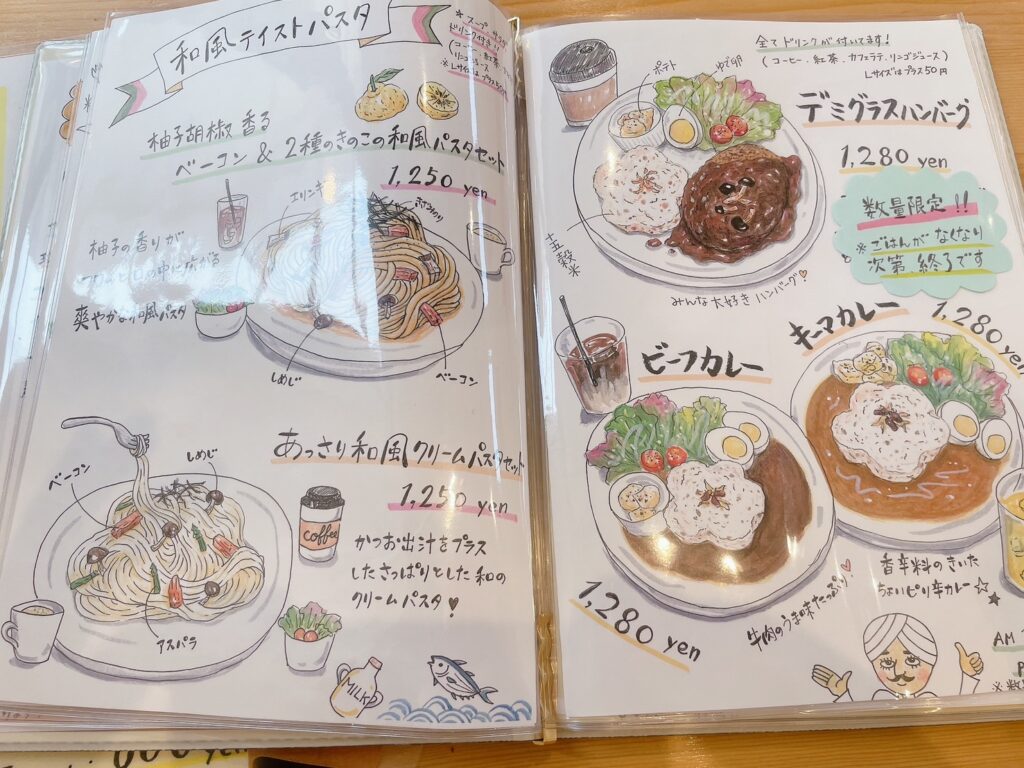 和風テイストパスタ
*スープ
ドリンク付き!!
(コーヒー、紅茶
リンゴジュース)
*Lサイズはプラス50円
柚子胡椒香る
ベーコン & 2種のきのこの和風パスタセット
1,250 yen
エリンギ
きざみのり
柚子の香りが
広がる
爽やかな和風パスタ
しめじ
ベーコン
あっさり和風クリームパスタセット
1,250 yen
ベーコン
しめじ
アスパラ
coffee
かつお出汁をプラス
したさっぱりとした和の
クリームパスタ♥
MILK
全てドリンクが付いてます!
(コーヒー、紅茶、カフェラテ、リンゴジュース)
Lサイズはプラス50円
ポテト
ゆで卵
デミグラスハンバーグ
1,280 yen
数量限定!!
※ごはんがなくなり
次第終了です
五穀米
みんな大好きハンバーグ♡
キーマカレー
1,280 yen
ビーフカレー
1,280 yen
牛肉のうま味たっぷり♥
香辛料のきいた
ちょいピリ辛カレー☆
AM
※数
yen